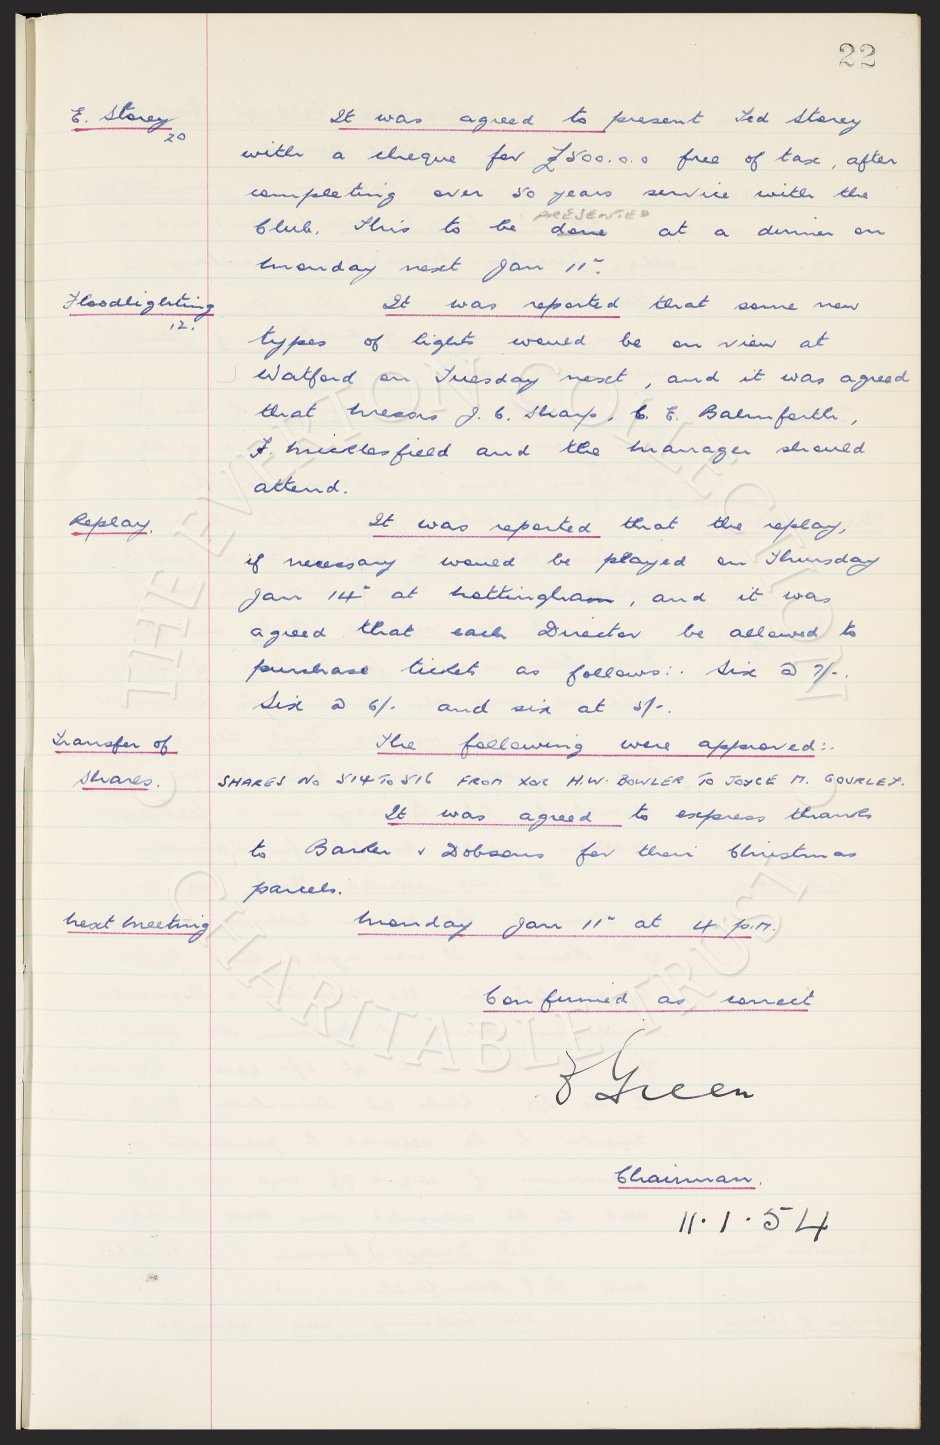 22
E. Storey
20
It was agreed to present Ted Storey
with a cheque for £500.0.0 free of tax, after
completing over 50 years service with the
PRESENTED
Club. This to be done at a dinner on
Monday next Jan 11".
Floodlighting
12.
It was reported that some new
types of lights would be on view at
Watford on Tuesday next, and it was agreed
that Messrs J. C. Sharp, C. E. Balmforth,
F. Micklesfield and the Manager should
attend.
Replay.
It was reported that the replay,
if necessary would be played on Thursday
Jan 14" at Nottingham, and it was
agreed that each Director be allowed to
purchase tickets as follows:. Six @ 7/-.
Six @ 6/- and six at 5/-.
Transfer of
Shares.
The following were approved:-
SHARES No 514 TO 516 FROM XOR H.W. BOWLER TO JOYCE M. GOURLEY.
It was agreed to express thanks
to Barker & Dobsons for their Christmas
parcels.
Next Meeting
Monday Jan 11" at 4 p.m.
Confirmed as correct
Green
Chairman.
11.1.54
© THE EVERTON COLLECTION CHARITABLE TRUST